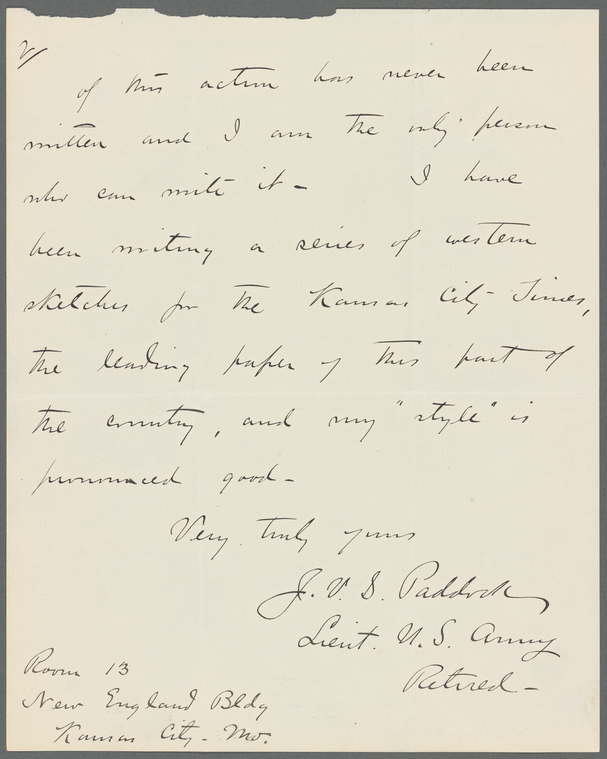 2/
of this action has never been
written and I am the only person
who can write it - I have
been writing a series of western
sketches for the Kansas City Times,
the leading paper of this part of
the country, and my "style" is
pronounced good -
Very truly yours
J. V. S. Paddock
Lieut. U. S. Army
Retired -
Room 13
New England Bldg
Kansas City - Mo.